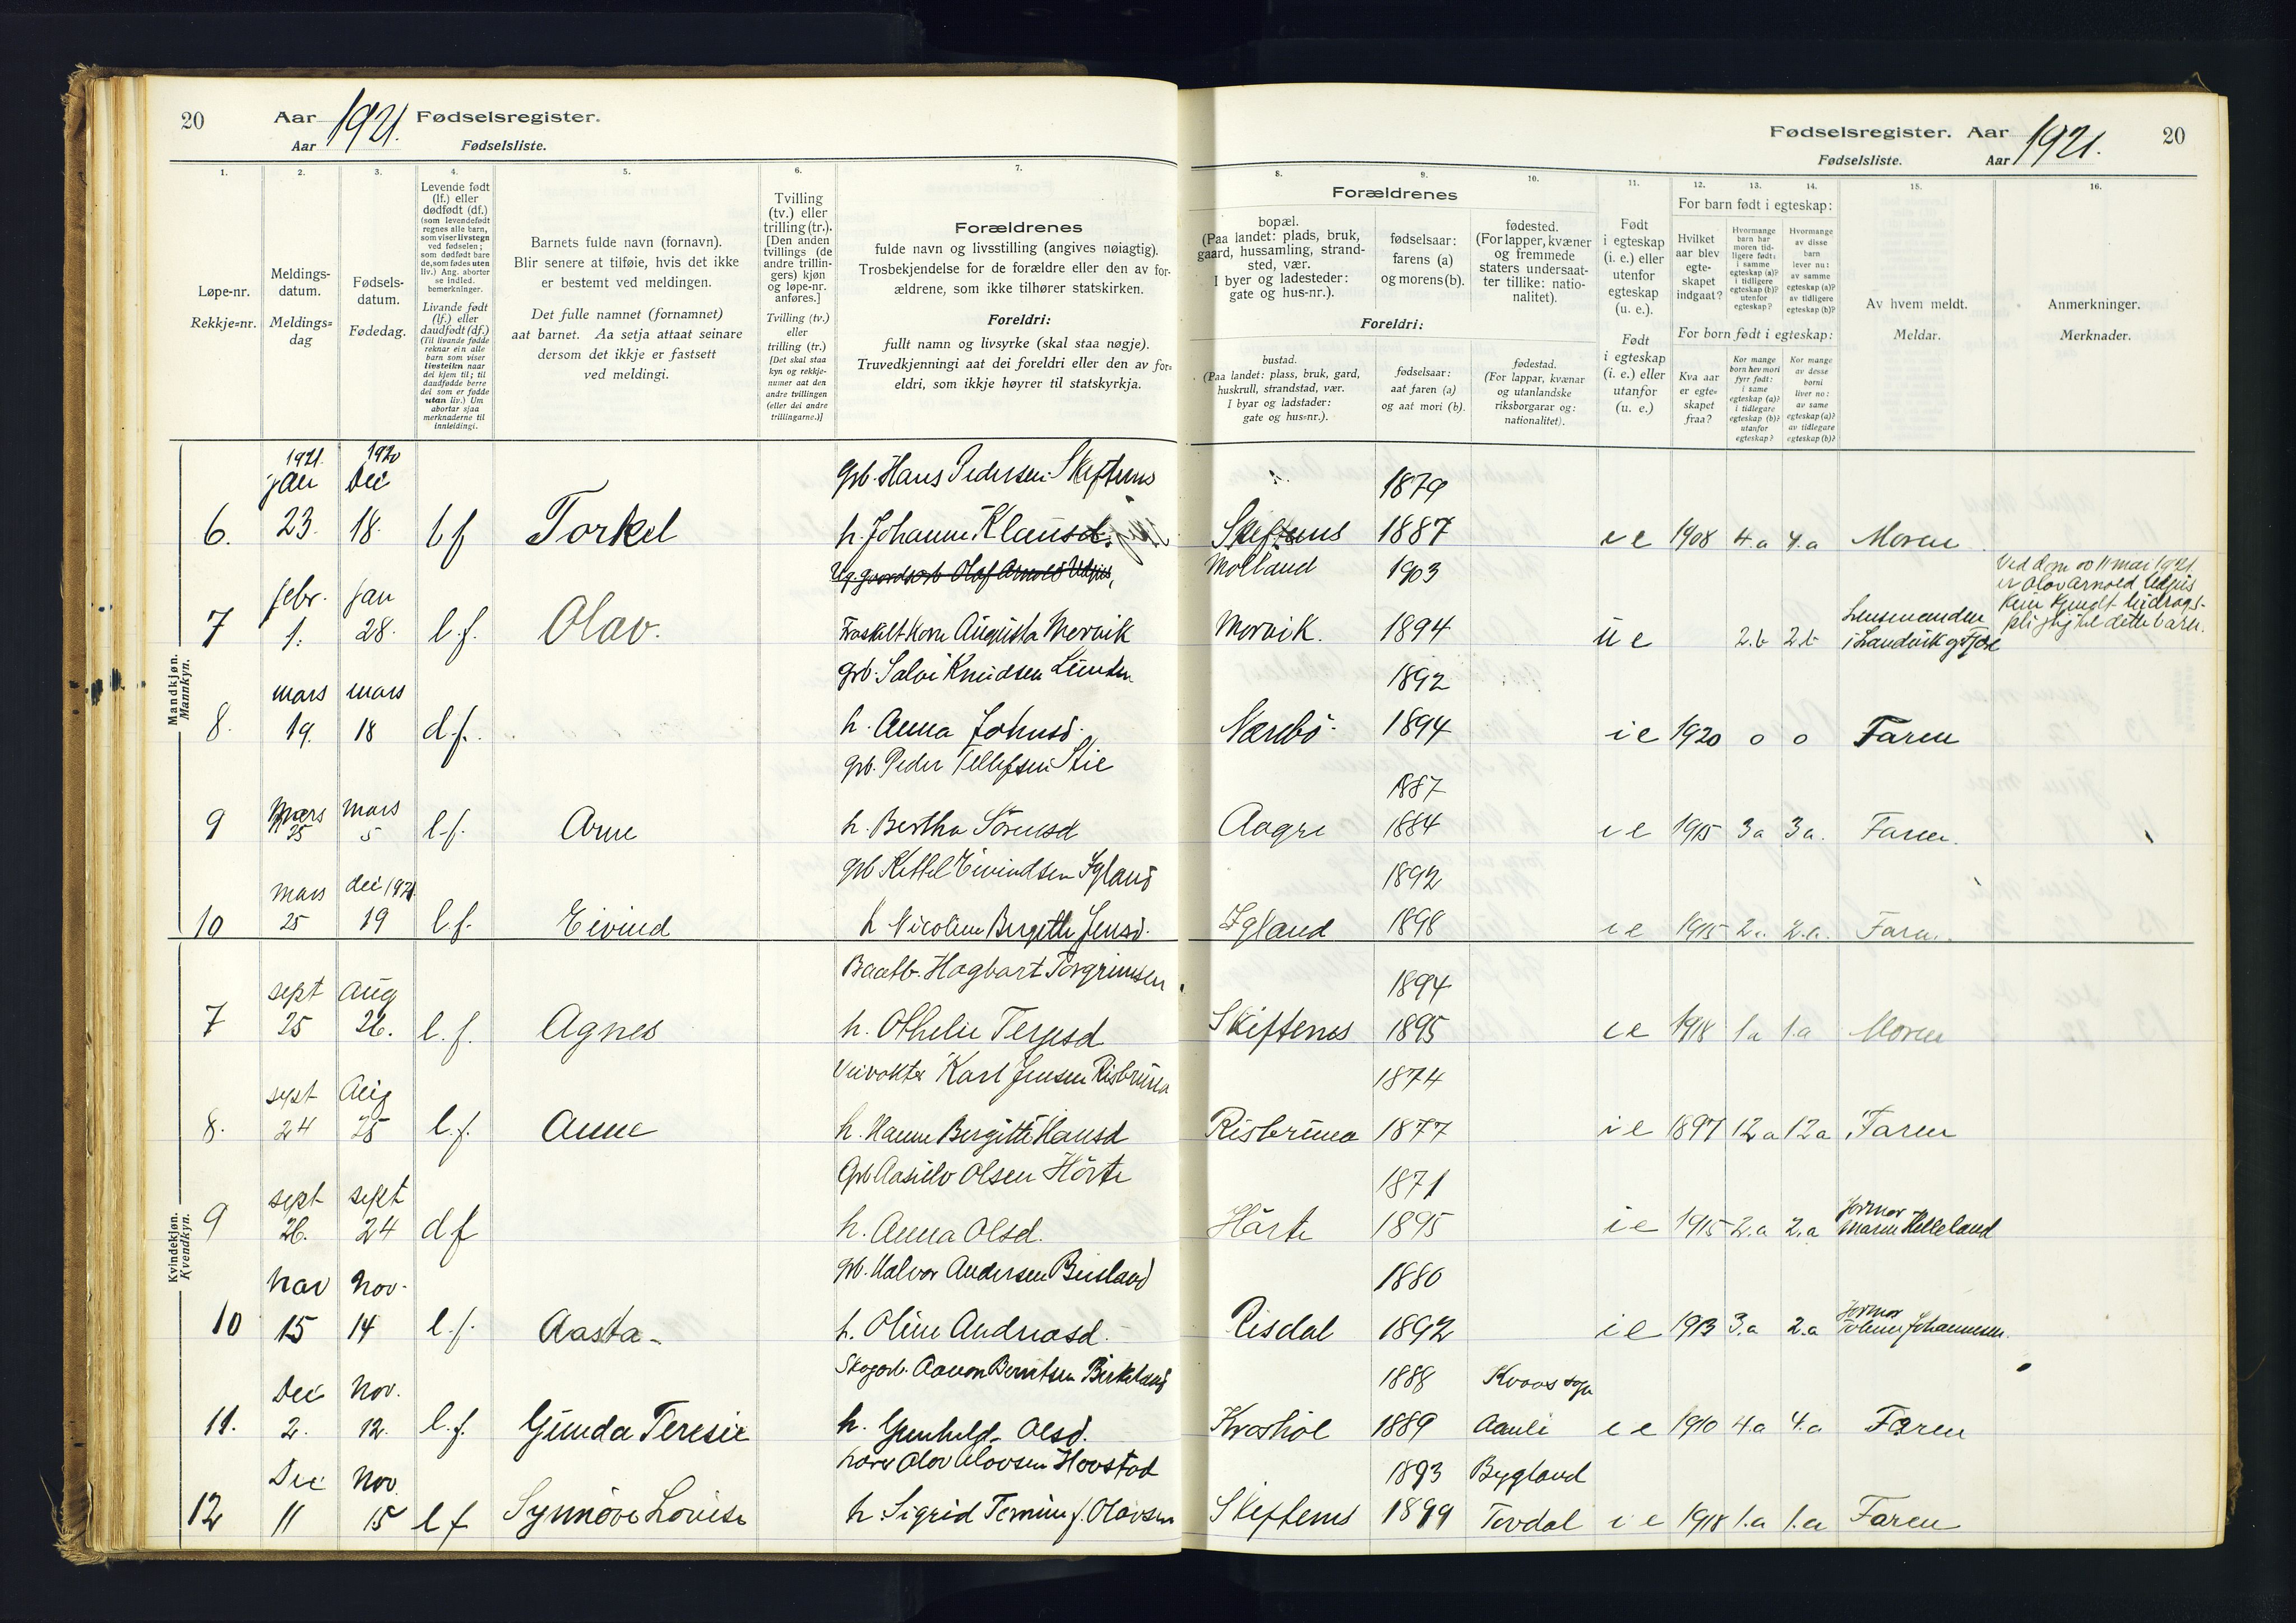 20 Aar 1921. Fødselsregister.
Aar Fødselsliste.
Fødselsregister. Aar 1921. 20
Fødselsliste. Aar
1. 2. 3. 4. 5. 6. 7. 8. 9. 10. 11. 12. 13. 14. 15. 16.
Løpe-nr.
Rekkje=nr.
Meldings-
datum.
Meldings=
dag
Fødsels-
datum.
Fødedag.
Levende født
(lf.) eller
dødfødt (df.)
(som levendefødt
regnes alle barn,
som viser livstegn
ved fødselen;
som dødfødt bare
de, som fødes uten
liv.) Ang. aborter
se indled.
bemerkninger.
Livande født
(lf.) eller
daudfødt (df.)
(Til livande fødde
reknar ein alle
barn som viser
livsteikn naar
dei kjem til; til
daudfødde berre
dei som er fødde
utan liv.) Um
abortar sjaa
merknaderne til
innleidingi.
Barnets fulde navn (fornavn).
Blir senere at tilføie, hvis det ikke
er bestemt ved meldingen.
Det fulle namnet (fornamnet)
aat barnet. Aa setja attaat seinare
dersom det ikkje er fastsett
ved meldingi.
Tvilling
(tv.) eller
trilling (tr.).
[Den anden
tvillings (de
andre trillin-
gers) kjøn
og løpe-nr.
anføres.]
Tvilling (tv.)
eller
trilling (tr.)
[Det skal staa
kyn og rekkje-
numer aat den
andre tvillingen
(eller dei andre
trillingarne.)]
Forældrenes
fulde navn og livsstilling (angives nøiagtig).
Trosbekjendelse for de forældre eller den av for-
ældrene, som ikke tilhører statskirken.
Foreldri:
fullt namn og livsyrke (skal staa nøgje).
Truvedkjenningi aat dei foreldri eller den av for=
eldri, som ikkje høyrer til statskyrkja.
Forældrenes
bopæl.
(Paa landet: plads, bruk,
gaard, hussamling, strand-
sted, vær.
I byer og ladesteder:
gate og hus-nr.).
fødselsaar:
farens (a)
og morens (b).
fødested.
(For lapper, kvæner
og fremmede
staters undersaat-
ter tillike: natio-
nalitet).
Foreldri:
bustad.
(Paa landet: plass, bruk, gard,
huskrull, strandstad, vær.
I byar og ladstader:
gate og hus-nr.).
fødselsaar:
aat faren (a)
og aat mori (b).
fødestad.
(For lappar, kvænar
og utanlandske
riksborgarar og:
nationalitet).
Født
i egteskap
(i. e.) eller
utenfor
egteskap
(u. e.).
Født
i egteskap
(i. e.) eller
utanfor
(u. e.)
For barn født i egteskap:
Hvilket
aar blev
egte-
skapet
indgaat?
Hvormange
barn har
moren tid-
ligere født:
i samme
egteskap (a)?
i tidligere
egteskap (b)?
utenfor
egteskap?
Hvormange
av disse
barn
lever nu:
av samme
egteskap (a)?
av tidligere
egteskap (b)?
For born født i egteskap:
Kva aar
er egte-
skapet
fraa?
Kor mange
born hev mori
fyrr født:
i same
egteskap (a)?
i tidlegare
egteskap (b)?
utanfor
egteskap?
Kor mange
av desse
borni
liver no:
av same
egteskap (a)?
av tidlegare
egteskap (b)?
Av hvem meldt.
Meldar.
Anmerkninger.
Merknader.
Mandkjøn.
Mannkyn.
1921. 1920
jan Dec Grb. Hans Pedersen Skiftenes 1879
6. 23. 18. l f Torkel h. Johanne Klausd. Skiftenes 1887 i e 1908 4.a 4.a Moren
Ug. gaardsarb Olaf Arnold Udjus, Molland 1903
febr. jan
7 1. 28. l.f. Olav. Augusta Morvik Morvik. 1894 u e 2.b 2.b Lensmanden
i Landvik og Fjære
Ved dom av 11 mai 1921
er Olav Arnold Udjus
kun kjendt bidrags-
pligtig til dette barn.
mars mars Grb. Salve Knudsen 1892
8. 19. 18 d.f. h. Anna Johnsd. Næsebö 1894 i e 1920 0 0 Faren
Grb. Peder Tellefsen Stie 1887
mars mars
9 25 5 l.f. Arne h. Bertha Sörensd Aagre 1884 i e 1915 3a 3a. Faren.
Grb Kittel Eivindsen Igland 1892
mars dec 192
10 25 19 l.f. Eivind h Nicoline Bergitte Jensd. Igland 1898 i e 1915 2a 2.a. Faren.
Kvindekjøn.
Kvendkyn.
Hagbart Torgrimsen 1894
sept Aug
7 25 26. l.f. Agnes h. Othelie Terjesd Skiftenes 1895 i e 1918 1a 1.a Moren
Veivokter Karl Jensen Risbruna 1874
sept Aug
8. 24 25 l.f. Anne h. Hanne Bergitte Hansd Risbruna 1877 i e 1897 12a 12a Faren
Grb Aasulv Olsen Hörte 1871
sept sept
9 26. 24 d f h. Anna Olsd. Hörte 1895 i e 1915 2.a 2.a Jormor
Maren Helleland
Grb. Halvor Andersen Beisland 1880
nov nov.
10 15 14 l.f. Aasta h. Oline Andreasd. Risdal 1892 i e 1913 3.a 2.a Jormor
Johannesen.
Skogarb. Aanon Berntsen Birkeland 1888 Kvaas sogn
Dec Nov.
11. 2. 12. l.f. Gunda Teresie h. Gunhild Olsd. Kvashöl 1889 Aamli i e 1910 4.a 4.a Faren
Lærer Olav Olavsen Hovstad 1893 Bygland
Dec Nov.
12 11 15 l f Synnöve Lovise h. Sigrid Tomine f. Olavsen Skiftenes 1899 Tovdal i e 1918 1.a 1.a Faren